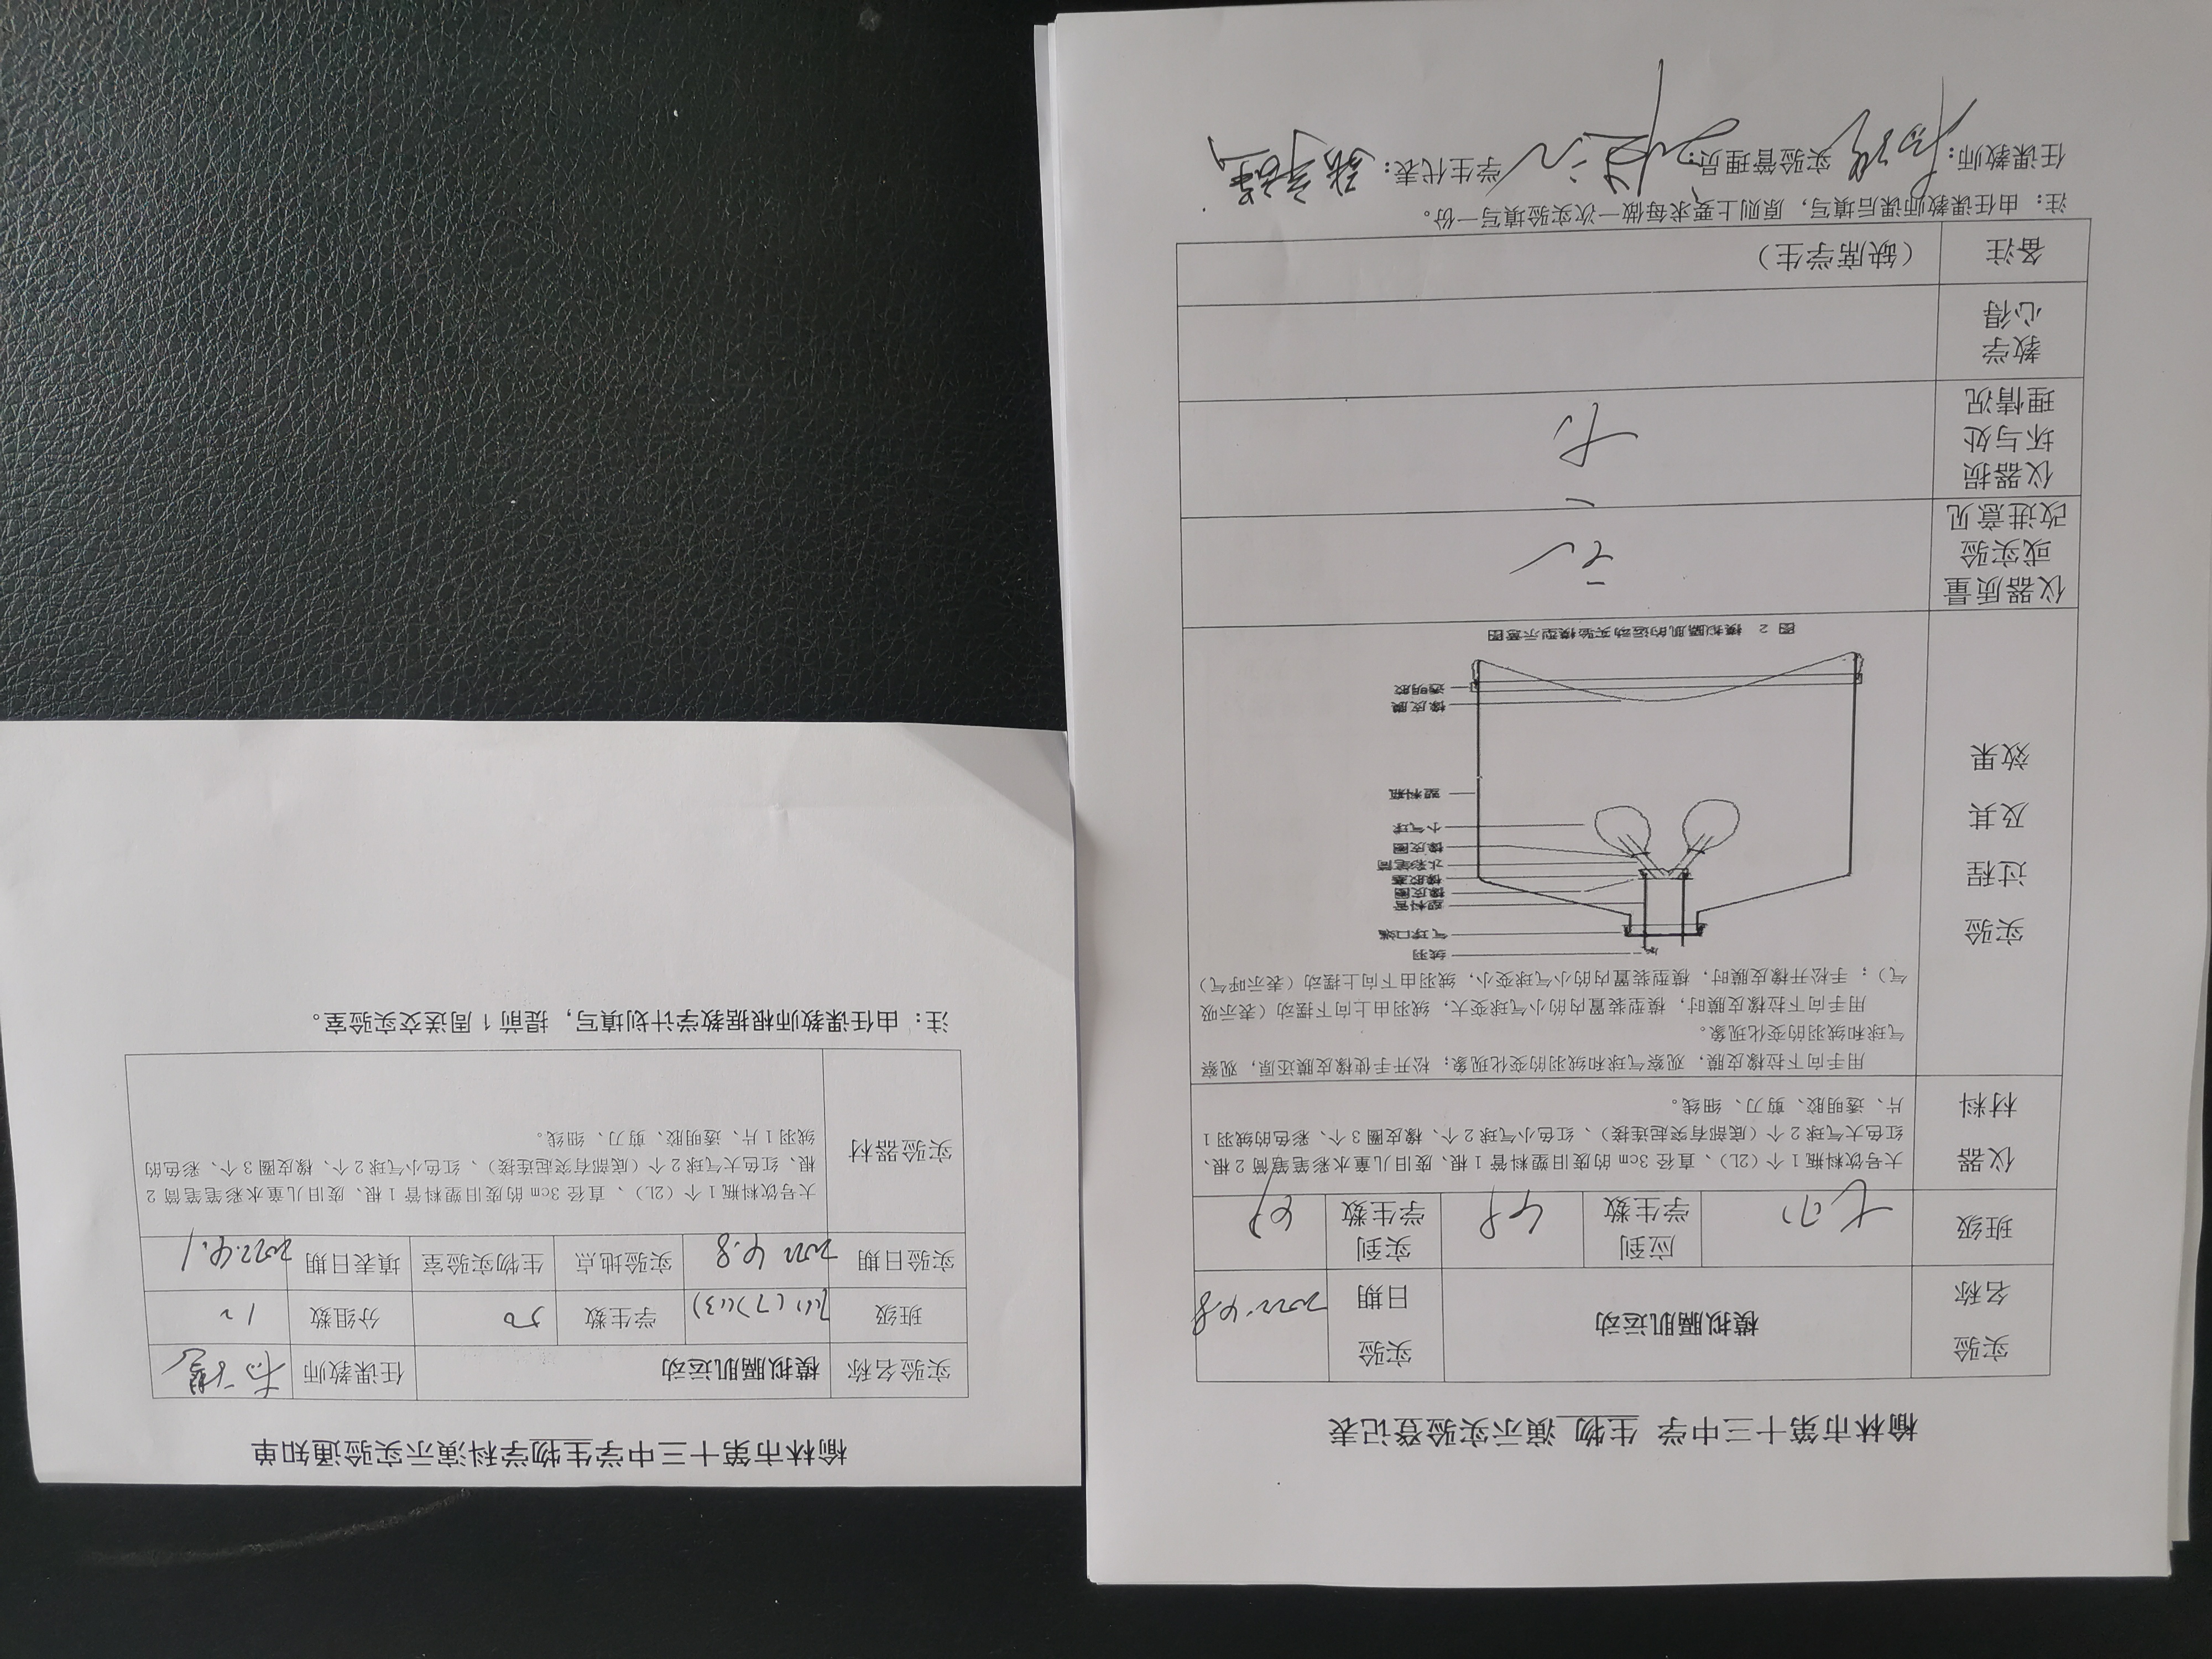 榆林市第十三中学 生物 演示实验登记表
实验名称 模拟膈肌运动 实验日期 2022.4.8
班级 七(7) 应到学生数 49 实到学生数 49
仪器材料 大号饮料瓶1个(2L)、直径3cm的废旧塑料管1根、废旧儿童水彩笔笔筒2根、
红色大气球2个(底部有突起连接)、红色小气球2个、橡皮圈3个、彩色的绒羽1
片、透明胶、剪刀、细线。
实验过程及其效果
用手向下拉橡皮膜，观察气球和绒羽的变化现象；松开手使橡皮膜还原，观察
气球和绒羽的变化现象。
用手向下拉橡皮膜时，模型装置内的小气球变大，绒羽由上向下摆动(表示吸
气)；手松开橡皮膜时，模型装置内的小气球变小，绒羽由下向上摆动(表示呼气)
绒羽
气球口端
塑料管
橡皮圈
橡胶塞
水彩笔筒
橡皮圈
小气球
塑料瓶
橡皮膜
透明胶
图 2 模拟膈肌的运动实验模型示意图
仪器质量或实验改进意见 无
仪器损坏与处理情况 无
教学心得
备注 (缺席学生)
注：由任课教师课后填写，原则上要求每做一次实验填写一份。
任课教师： 实验管理员： 学生代表：
榆林市第十三中学生物学科演示实验通知单
实验名称 模拟膈肌运动 任课教师
班级 学生数 50 分组数 12
实验日期 2022 4.8 实验地点 生物实验室 填表日期 2022.4.1
实验器材 大号饮料瓶1个(2L)、直径3cm的废旧塑料管1根、废旧儿童水彩笔笔筒2
根、红色大气球2个(底部有突起连接)、红色小气球2个、橡皮圈3个、彩色的
绒羽1片、透明胶、剪刀、细线。
注：由任课教师根据教学计划填写，提前1周送交实验室。